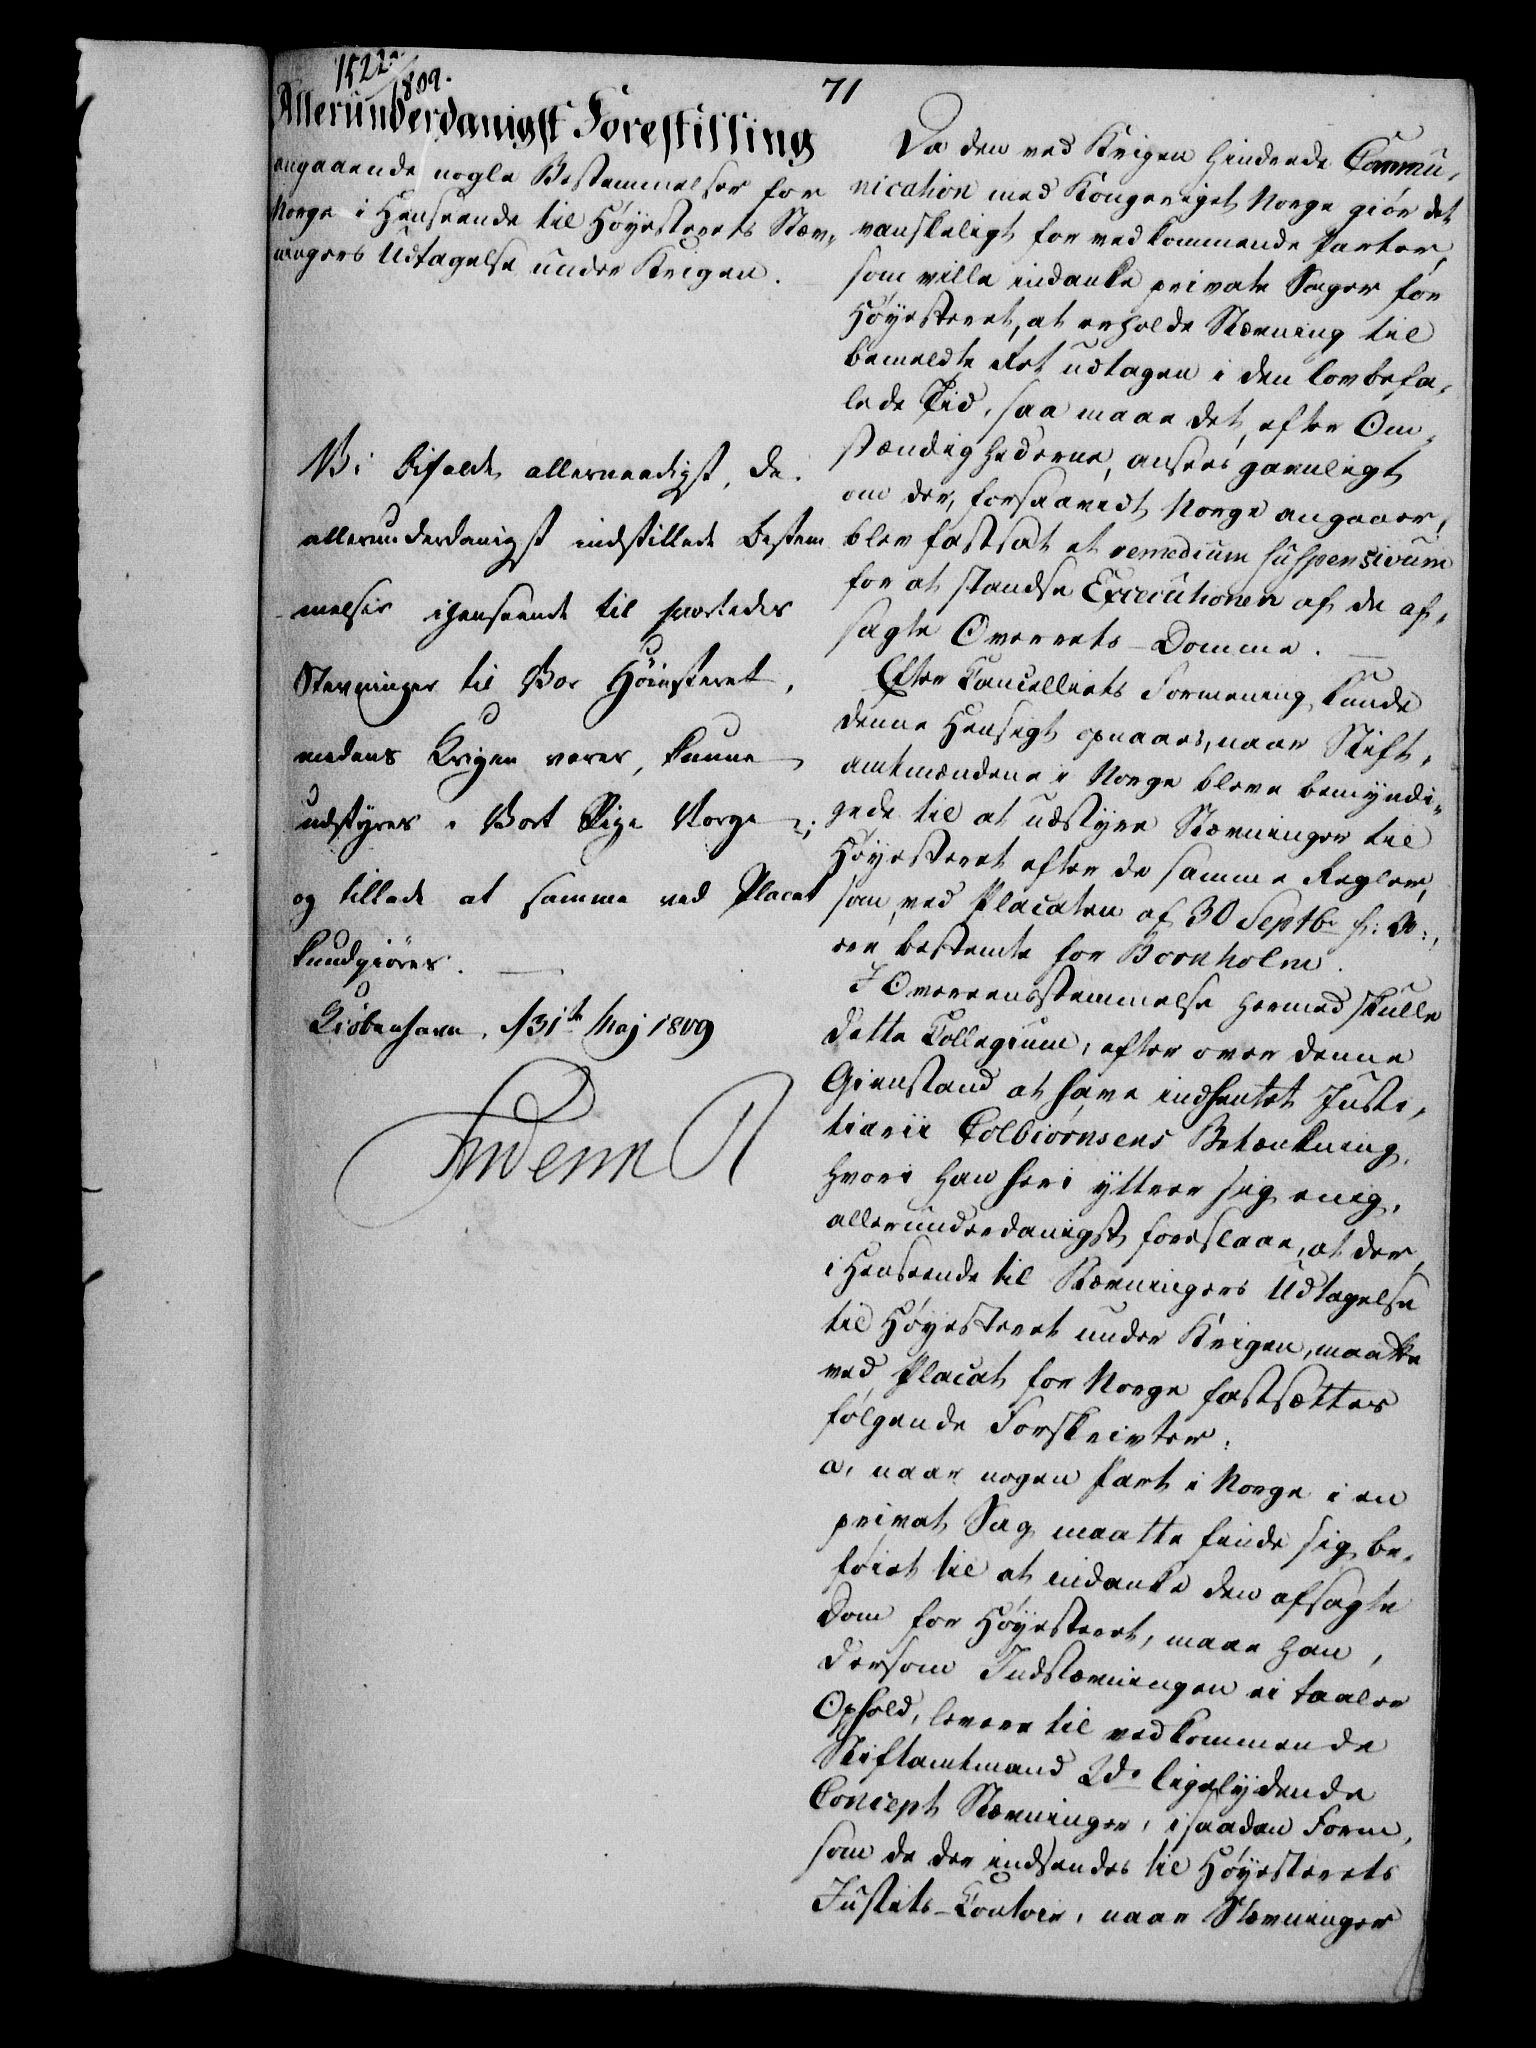 1522/1809.
71
Allerunderdanigst Forestilling
angaaende nogle Bestemmelser for
Norge i Henseende til Høyesterets Stæv-
ningers Udtagelse under Krigen.
Vi bifalde allernaadigst, de
allerunderdanigst indstillede Bestem
melser ihenseende til hvorledes
Stevninger til Vor Høiesteret,
medens Krigen varer, kunne
udstyres i Vort Rige Norge;
og tillade at samme ved Placat
kundgiøres.
Kiøbenhavn, d 31te Maj 1809
Frideric R
Da den ved Krigen hindrede Commu-
nication med Kongeriget Norge giør det
vanskeligt for vedkommende Parter,
som ville indanke private Sager for
Høyesteret, at erholde Stævning til
bemeldte Ret udtagen i den lovbefa-
lede Tid, saa maae det, efter Om-
stændighederne, ansees gavnligt
om der, forsaavidt Norge angaaer,
blev fastsat et remedium suspensivum
for at standse Executionen af de af-
sagte Overrets-Domme.
Efter Cancelliets Formening kunde
denne Hensigt opnaaes, naar Stift-
amtmændene i Norge bleve bemyndi-
gede til at udstyre Stævninger til
Høyesteret efter de samme Regler,
som ved Placaten af 30 Septbr f: A:,
ere bestemte for Bornholm.
I Overeensstemmelse hermed skulle
dette Collegium, efter over denne
Gienstand at have indhentet Justi-
tiarii Colbiørnsens Betænkning,
hvori han heri yttrer sig enig,
allerunderdanigst foreslaae, at der,
i Henseende til Stævningers Udtagelse
til Høyesteret under Krigen, maatte
ved Placat for Norge fastsættes
følgende Forskrivter:
a, naar nogen Part i Norge i en
privat Sag maatte finde sig be-
føiet til at indanke den afsagte
Dom for Høyesteret, maae han,
dersom Indstævningen ei taaler
Ophold, levere til vedkommende
Stiftamtmand 2de ligelydende
Concept Stævninger, i saadan Form,
som de der indsendes til Høyesterets
Justits-Contoir, naar Stævninger